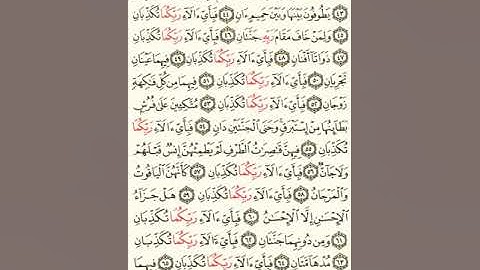 ﴿٤٣﴾ يَطُوفُونَ بَيْنَهَا وَبَيْنَ حَمِيمٍ ءَانٍ ﴿٤٤﴾ فَبِأَيِّ ءَالَآءِ رَبِّكُمَا تُكَذِّبَانِ
﴿٤٥﴾ وَلِمَنْ خَافَ مَقَامَ رَبِّهِۦ جَنَّتَانِ ﴿٤٦﴾ فَبِأَيِّ ءَالَآءِ رَبِّكُمَا تُكَذِّبَانِ
﴿٤٧﴾ ذَوَاتَآ أَفْنَانٍ ﴿٤٨﴾ فَبِأَيِّ ءَالَآءِ رَبِّكُمَا تُكَذِّبَانِ ﴿٤٩﴾ فِيهِمَا عَيْنَانِ
تَجْرِيَانِ ﴿٥٠﴾ فَبِأَيِّ ءَالَآءِ رَبِّكُمَا تُكَذِّبَانِ ﴿٥١﴾ فِيهِمَا مِن كُلِّ فَٰكِهَةٍ
زَوْجَانِ ﴿٥٢﴾ فَبِأَيِّ ءَالَآءِ رَبِّكُمَا تُكَذِّبَانِ ﴿٥٣﴾ مُتَّكِـِٔينَ عَلَىٰ فُرُشٍۭ
بَطَآئِنُهَا مِنْ إِسْتَبْرَقٍ وَجَنَى ٱلْجَنَّتَيْنِ دَانٍ ﴿٥٤﴾ فَبِأَيِّ ءَالَآءِ رَبِّكُمَا
تُكَذِّبَانِ ﴿٥٥﴾ فِيهِنَّ قَٰصِرَٰتُ ٱلطَّرْفِ لَمْ يَطْمِثْهُنَّ إِنسٌ قَبْلَهُمْ
وَلَا جَآنٌّ ﴿٥٦﴾ فَبِأَيِّ ءَالَآءِ رَبِّكُمَا تُكَذِّبَانِ ﴿٥٧﴾ كَأَنَّهُنَّ ٱلْيَاقُوتُ
وَٱلْمَرْجَانُ ﴿٥٨﴾ فَبِأَيِّ ءَالَآءِ رَبِّكُمَا تُكَذِّبَانِ ﴿٥٩﴾ هَلْ جَزَآءُ
ٱلْإِحْسَٰنِ إِلَّا ٱلْإِحْسَٰنُ ﴿٦٠﴾ فَبِأَيِّ ءَالَآءِ رَبِّكُمَا تُكَذِّبَانِ
﴿٦١﴾ وَمِن دُونِهِمَا جَنَّتَانِ ﴿٦٢﴾ فَبِأَيِّ ءَالَآءِ رَبِّكُمَا تُكَذِّبَانِ
﴿٦٣﴾ مُدْهَآمَّتَانِ ﴿٦٤﴾ فَبِأَيِّ ءَالَآءِ رَبِّكُمَا تُكَذِّبَانِ ﴿٦٥﴾ فِيهِمَا